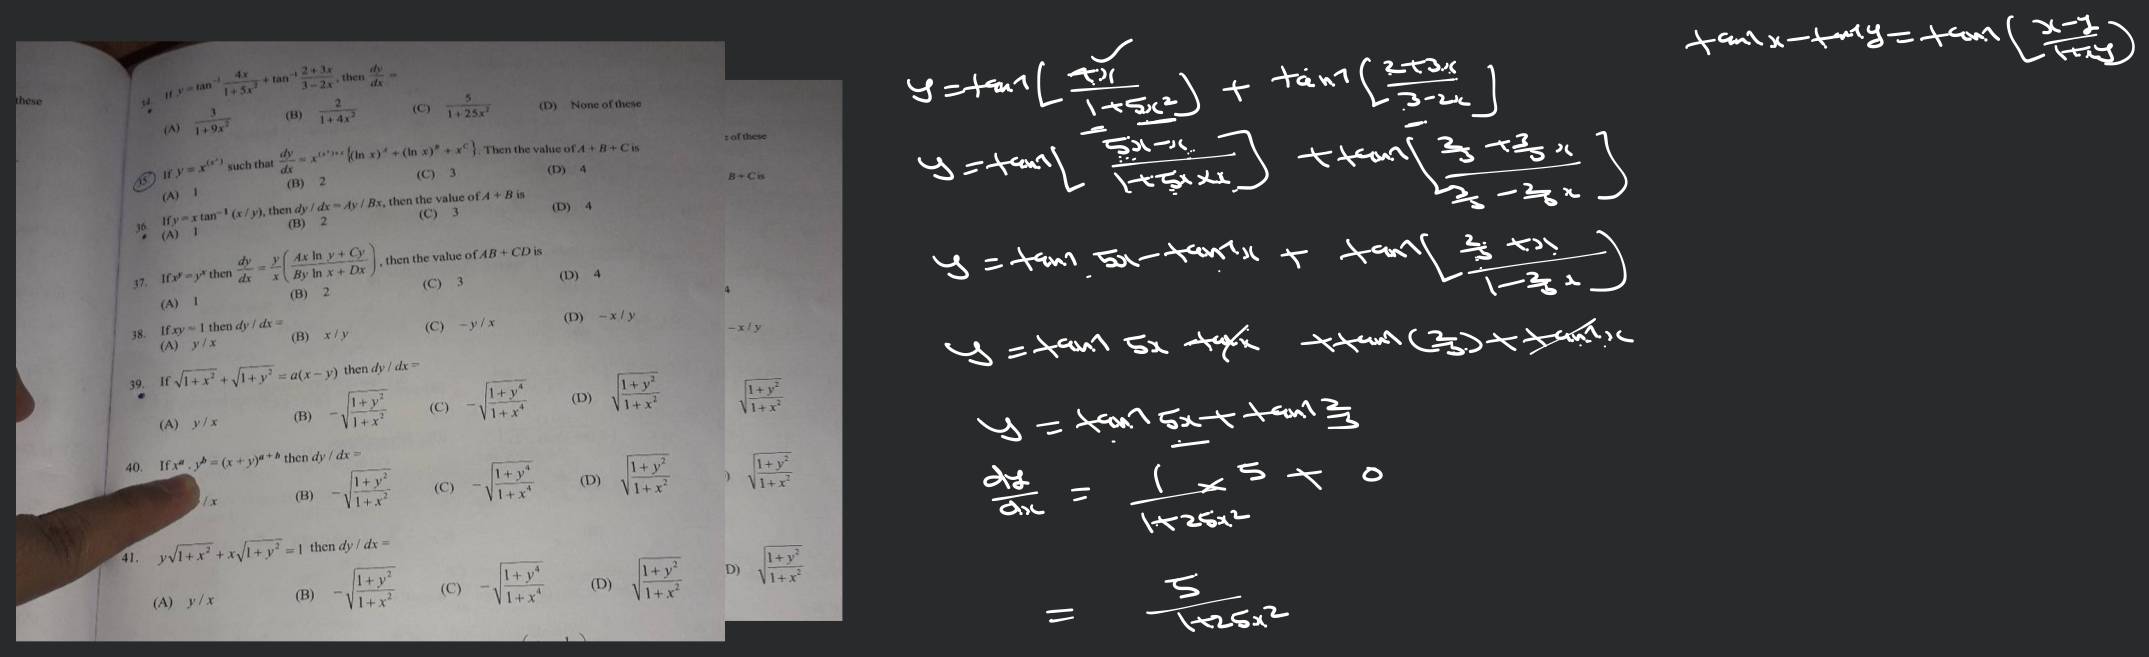 these
34. If y = tan⁻¹ 4x/(1+5x²) + tan⁻¹ (2+3x)/(3−2x), then dy/dx =
(A) 3/(1+9x²) (B) 2/(1+4x²) (C) 5/(1+25x²) (D) None of these
35. If y = x^(x^x) such that dy/dx = x^(x^x)+x {(ln x)^A + (ln x)^B + x^C}. Then the value of A + B + C is
(A) 1 (B) 2 (C) 3 (D) 4
36. If y = x tan⁻¹ (x / y), then dy / dx = Ay / Bx, then the value of A + B is
(A) 1 (B) 2 (C) 3 (D) 4
37. If x^y = y^x then dy/dx = y/x ((Ax ln y + Cy)/(By ln x + Dx)), then the value of AB + CD is
(A) 1 (B) 2 (C) 3 (D) 4
38. If xy = 1 then dy / dx =
(A) y / x (B) x / y (C) − y / x (D) − x / y
39. If √(1+x²) + √(1+y²) = a(x − y) then dy / dx =
(A) y / x (B) −√((1+y²)/(1+x²)) (C) −√((1+y⁴)/(1+x⁴)) (D) √((1+y²)/(1+x²))
40. If x^a . y^b = (x + y)^(a+b) then dy / dx =
/ x (B) −√((1+y²)/(1+x²)) (C) −√((1+y⁴)/(1+x⁴)) (D) √((1+y²)/(1+x²))
41. y√(1+x²) + x√(1+y²) = 1 then dy / dx =
(A) y / x (B) −√((1+y²)/(1+x²)) (C) −√((1+y⁴)/(1+x⁴)) (D) √((1+y²)/(1+x²))
of these
B + C is
4
− x / y
√((1+y²)/(1+x²))
) √((1+y²)/(1+x²))
D) √((1+y²)/(1+x²))
tan⁻¹x − tan⁻¹y = tan⁻¹((x−y)/(1+xy))
y = tan⁻¹[4x/(1+5x²)] + tan⁻¹[(2+3x)/(3−2x)]
y = tan⁻¹[(5x−x)/(1+5x×x)] + tan⁻¹[(2/3+3/3 x)/(3/3−2/3 x)]
y = tan⁻¹ 5x − tan⁻¹x + tan⁻¹[(2/3+x)/(1−2/3 x)]
y = tan⁻¹ 5x − tan⁻¹x + tan⁻¹(2/3) + tan⁻¹x
y = tan⁻¹ 5x + tan⁻¹ 2/3
dy/dx = 1/(1+25x²) × 5 + 0
= 5/(1+25x²)